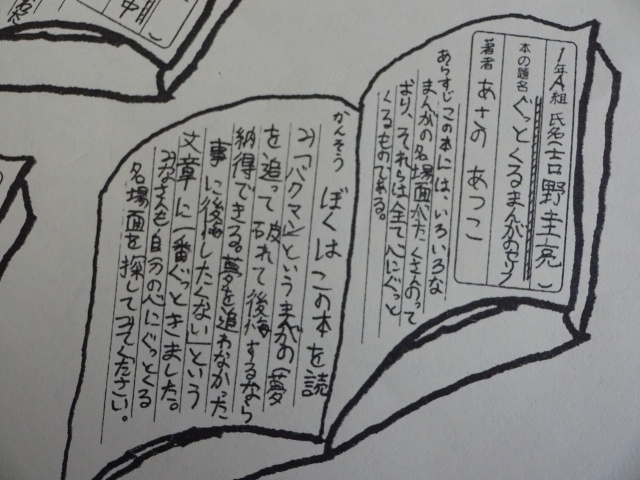 1年A組 氏名(吉野圭亮)
本の題名 ぐっとくるまんがのセリフ
著者 あさの あつこ
あらすじ この本には、いろいろな
まんがの名場面がたくさんのって
おり、それらは全て心にぐっと
くるものである。
かんそう ぼくはこの本を読
み「バクマン」というまんがの「夢
を追って破れて後悔するなら
納得できる。夢を追わなかった
事に後悔したくない」という
文章に一番ぐっときました。
みなさんも自分の心にぐっとくる
名場面を探してみてください。